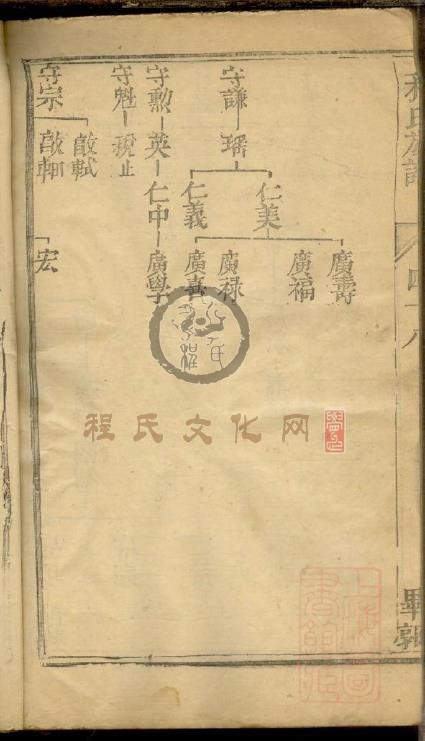 程氏族譜
四十八
畢郭
守謙 瑶
仁美 仁義
廣壽 廣福 廣禄 廣喜
守勲 英 仁中 廣學
守魁 稅止
守宗 啟軾 啟軻
宏
程氏文化网